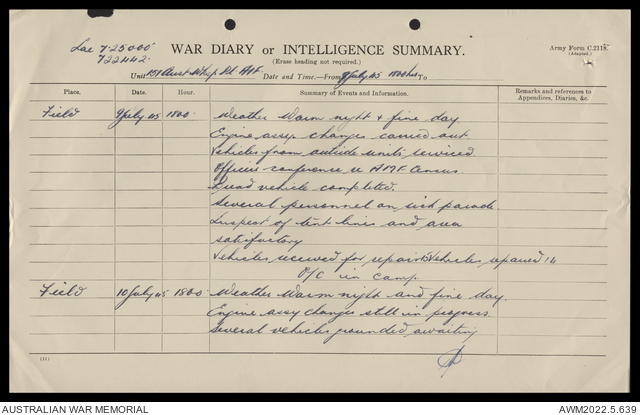 Lae 7-25000
722442.
WAR DIARY or INTELLIGENCE SUMMARY.
(Erase heading not required.)
Army Form C.2118.
(Adapted.)
Unit 151 Aust W'ksp Pl AIF Date and Time—From 9 July 45 1800 hrs To
Place. Date. Hour. Summary of Events and Information. Remarks and references to Appendices, Diaries, &c.
Field 9 July 45 1800 Weather Warm night + fine day
Engine assy changes carried out
Vehicles from outside units serviced
Officers conference re AMF Census.
Quad vehicle completed.
Several personnel on sick parade
Inspect of tent lines and area
satisfactory
Vehicles received for repair Vehicles repaired 14
O/C in camp.
Field 10 July 45 1800 Weather Warm night and fine day.
Engine assy changes still in progress.
Several vehicles grounded awaiting
(11)
AUSTRALIAN WAR MEMORIAL
AWM2022.5.639